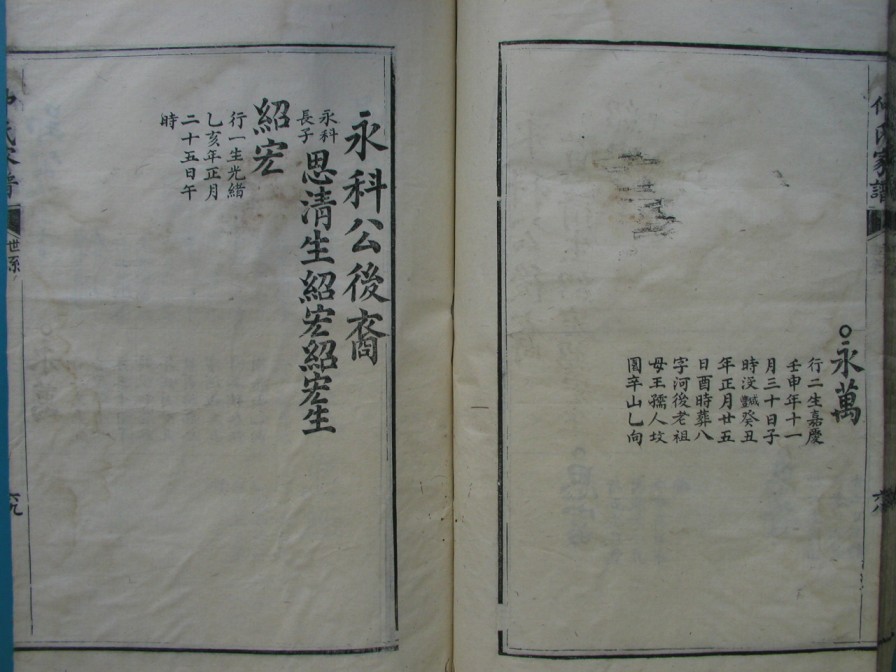 氏家譜
六八
永萬
行二生嘉慶
壬申年十一
月三十日子
時没豐癸丑
年正月廿五
日酉時葬八
字河後老祖
母王孺人坟
園辛山乙向
永科公後裔
永科
長子
思清生紹宏紹宏生
紹宏
行一生光緒
乙亥年正月
二十五日午
時
氏家譜
世系
六九